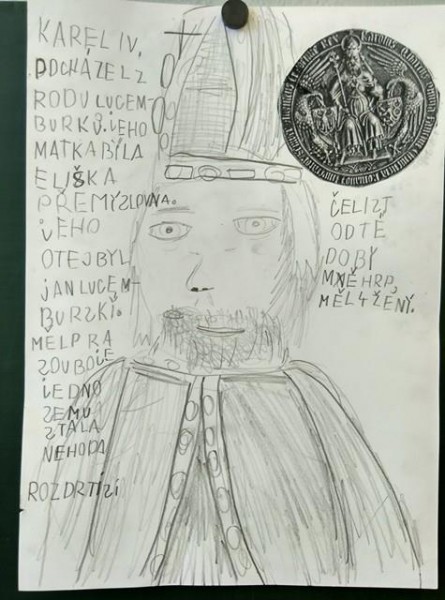 KAREL IV.
POCHÁZEL Z
RODU LUCEM-
BURKŮ. JEHO
MATKA BYLA
ELIŠKA
PŘEMYSLOVNA.
JEHO
OTEJ BYL
JAN LUCEM-
BURSKÍ.
MĚL PRA
SOUBOJE
JEDNO
ZEMU
STALA
NEHODA
ROZDRTIL SI
ČELIST
OD TÉ
DOBY
MNĚ HRP,
MĚL 4 ŽENY.